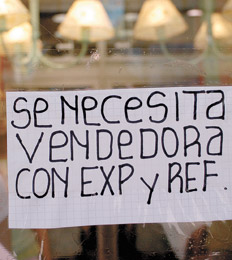 SE NECESITA
VENDEDORA
CON EXP y REF.